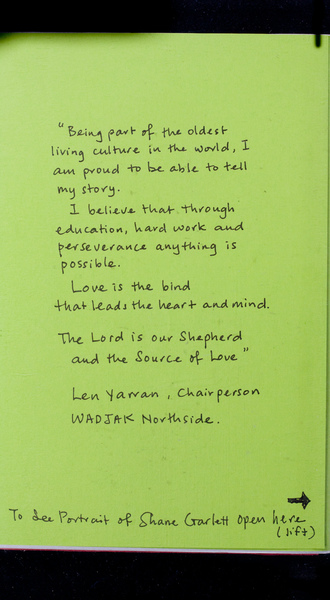 "Being part of the oldest
living culture in the world, I
am proud to be able to tell
my story.
I believe that through
education, hard work and
perseverance anything is
possible.
Love is the bind
that leads the heart and mind.
The Lord is our Shepherd
and the Source of Love"
Len Yarran, Chairperson
WADJAK Northside.
To see Portrait of Shane Garlett open here
(lift)